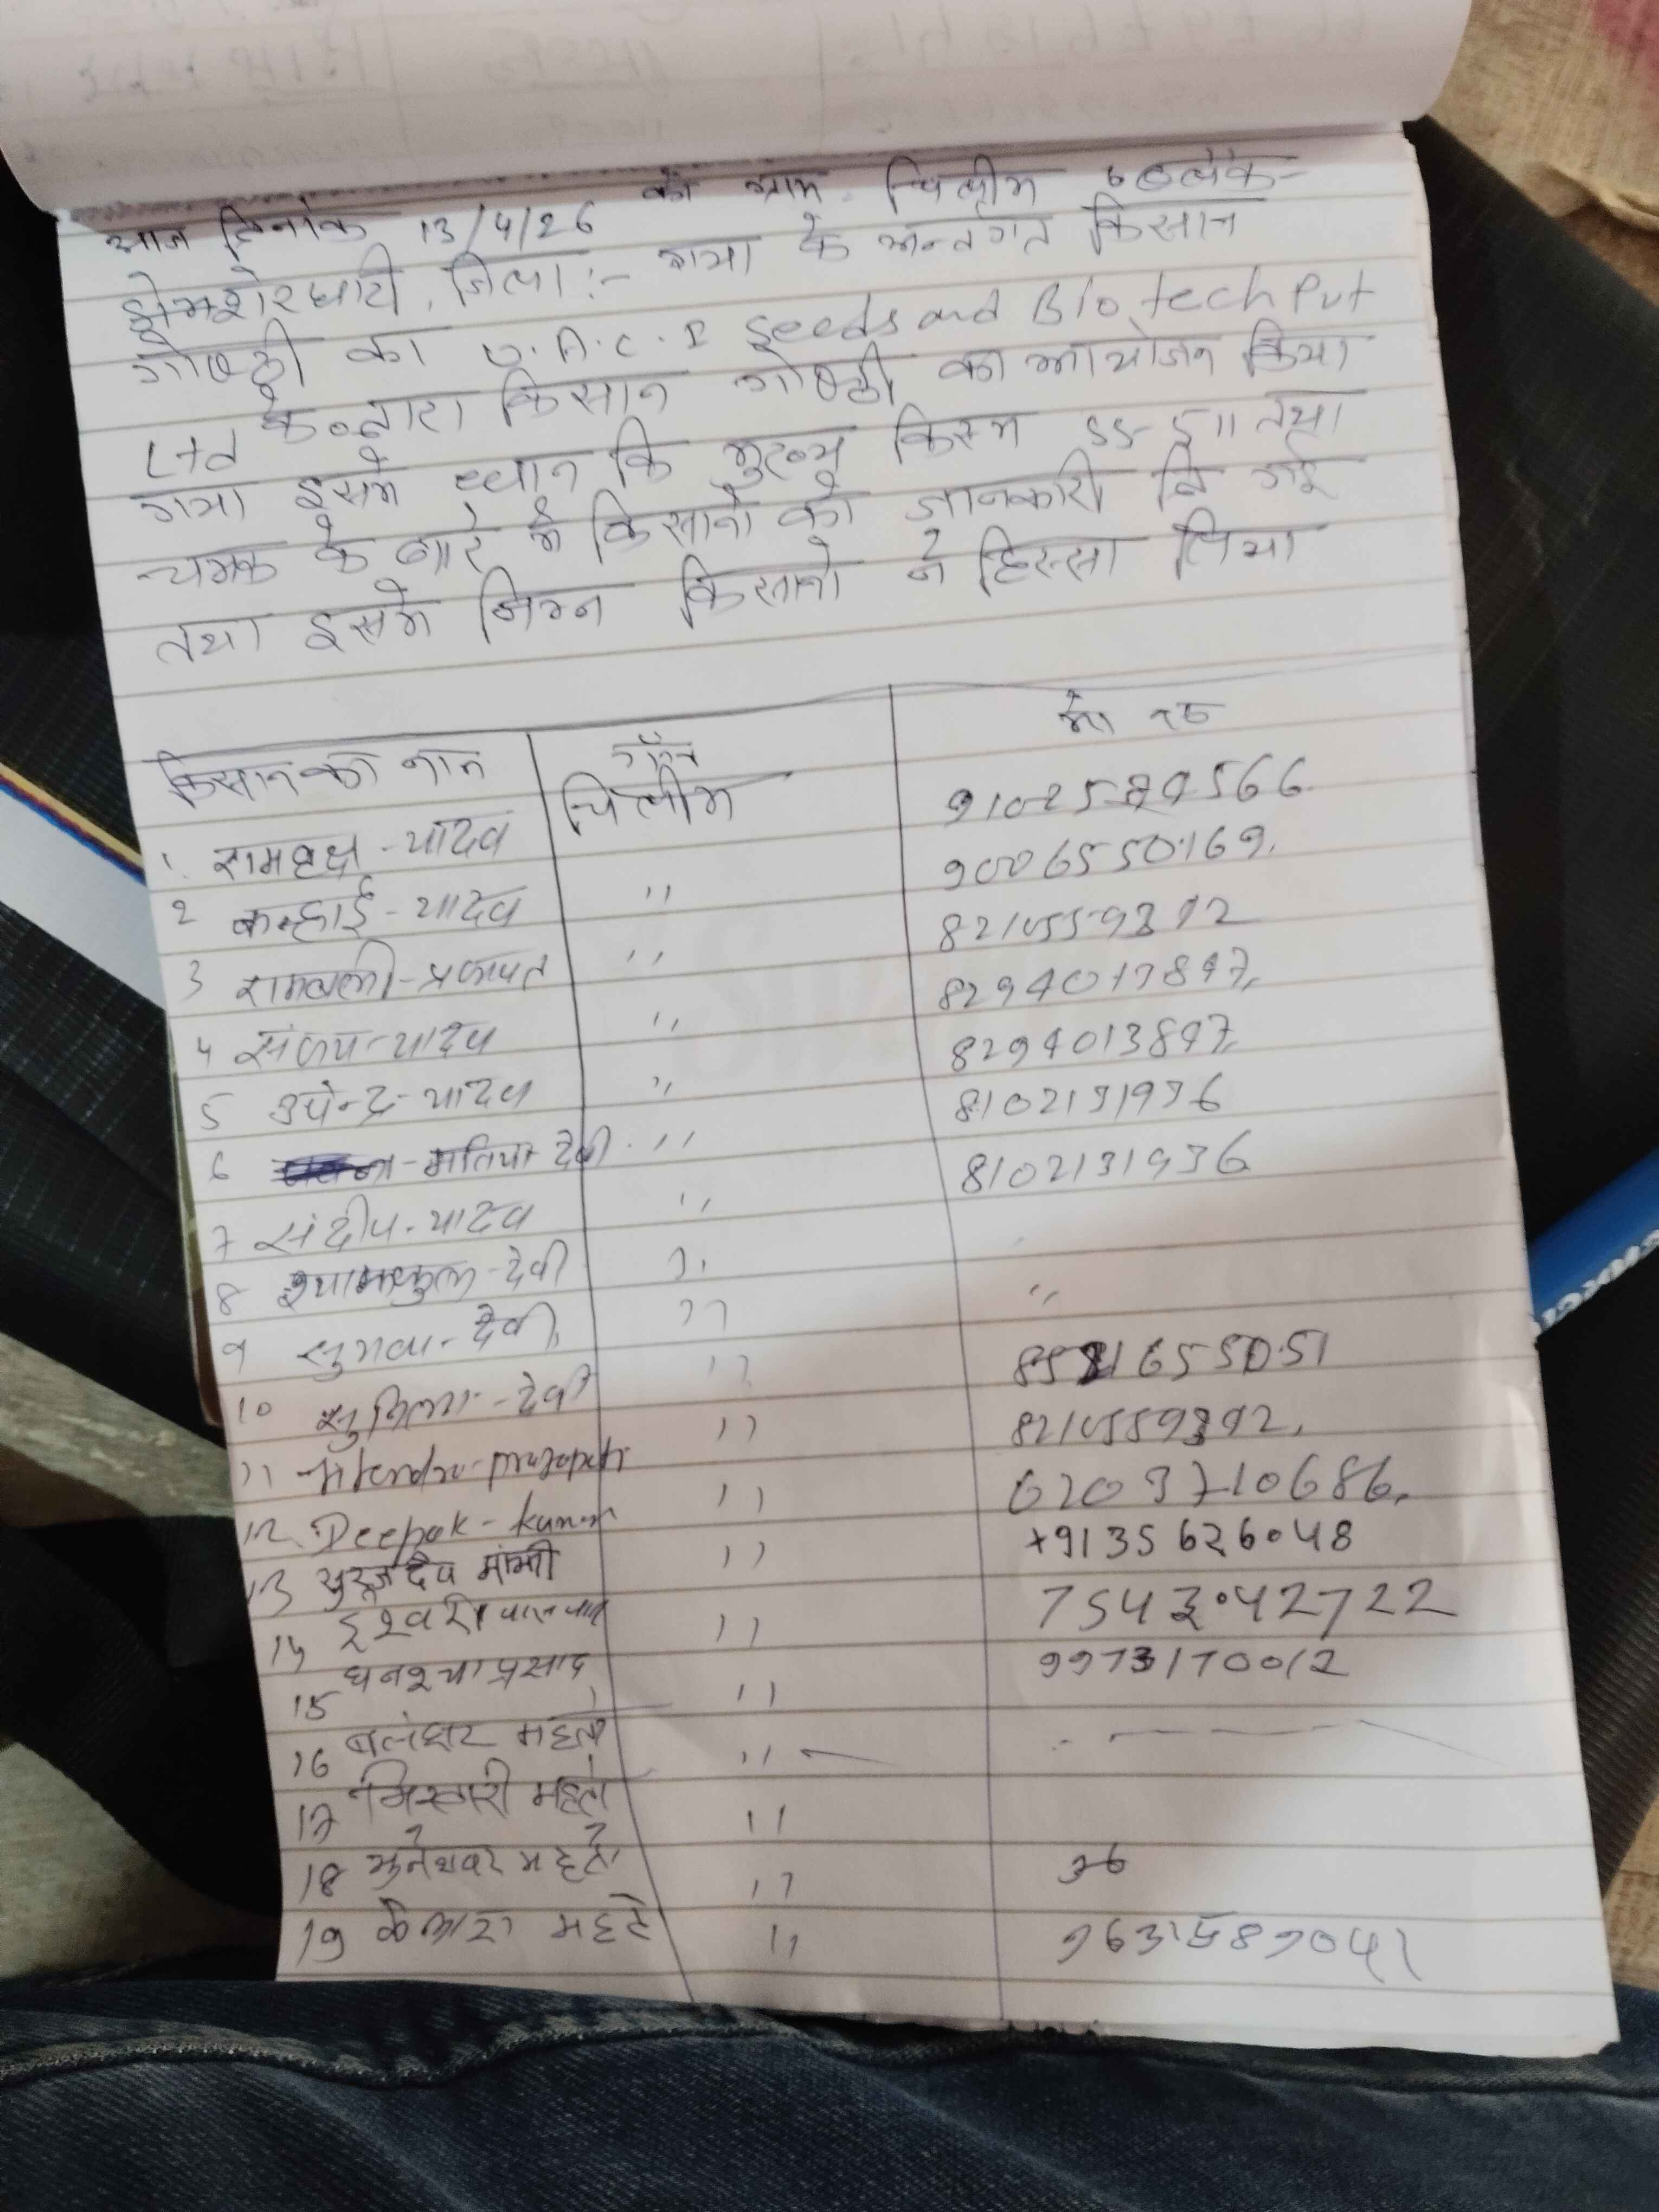 आज दिनांक 13/4/26 को ग्राम चिलीम ब्लॉक-
डोमशेरघाटी, जिला:- गया के अन्तर्गत किसान
गोष्ठी का U.A.C.I Seeds and Biotech Put
Ltd के द्वारा किसान गोष्ठी का आयोजन किया
गया इसमे ध्यान कि मुख्य किस्म SS-511 तथा
चमक के बारे में किसानो को जानकारी दि गई
तथा इसमे निम्न किसानो ने हिस्सा लिया
किसान का नाम गाँव मो न०
1. रामवृक्ष-यादव चिलीम 9102574566
2 कन्हाई-यादव '' 9006550169.
3 रामबली-प्रजापत '' 8210559392
4 संजय-यादव '' 8294013847,
5 उपेन्द्र-यादव '' 8294013847,
6 मतिया देवी '' 8102131936
7 संदीप-यादव '' 8102131936
8 देवी ''
9 देवी. '' ''
10 देवी '' 8521655051
11 Jitendra-prajapati '' 8210559392.
12. Deepak-kumar '' 6203710686.
13 सुरुजदेव मांझी '' +9135626048
14 ईश्वरी पासवान '' 7543042722
15 घनश्या प्रसाद '' 9973170012
16 महतो ''
17 महतो ''
18 मुनेश्वर महतो ''
19 कैलाश महतो '' 9631589041